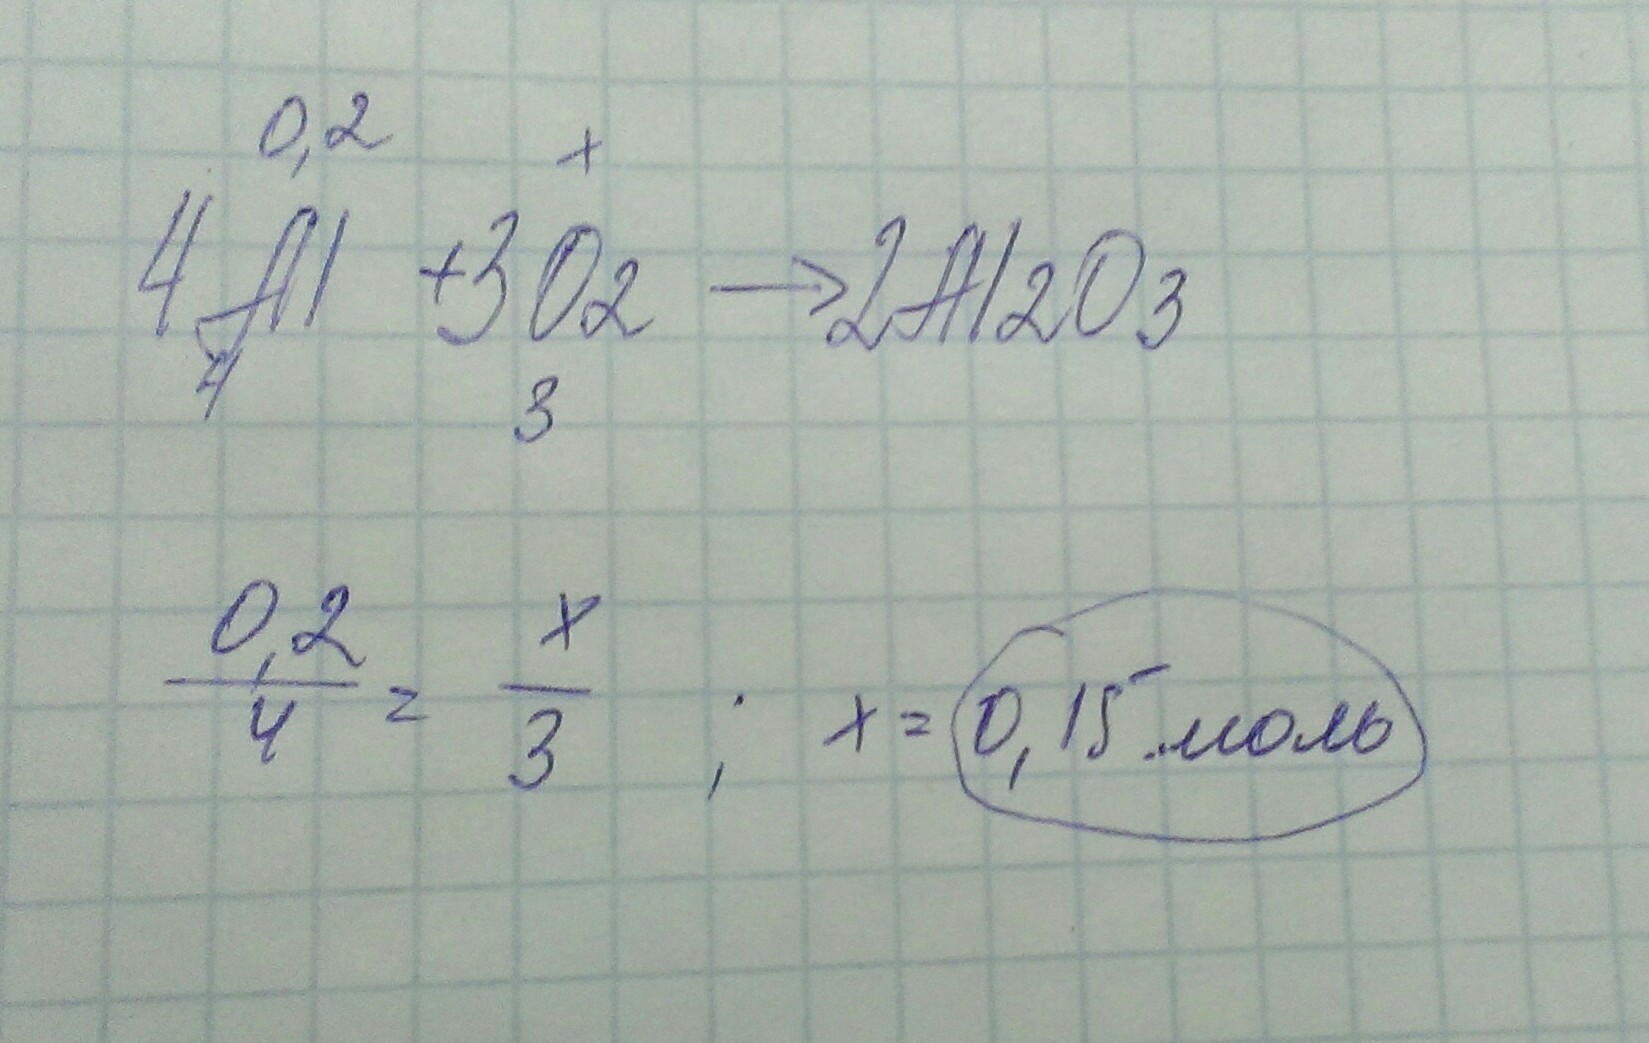 0,2 x
4Al +3O2 → 2Al2O3
4 3
0,2/4 = x/3 ; x = 0,15 моль